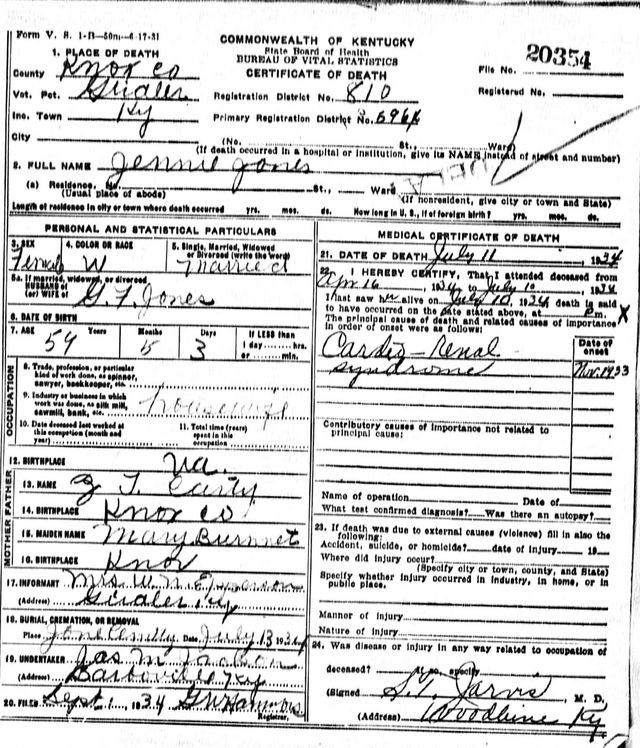 Form V. S. 1-B—50m—6-17-31
COMMONWEALTH OF KENTUCKY
State Board of Health
BUREAU OF VITAL STATISTICS
CERTIFICATE OF DEATH
File No. 20354
Registered No.
1. PLACE OF DEATH
County Knox Co
Vot. Pct. Girdler
Inc. Town Ky
City
Registration District No. 810
Primary Registration District No.
(No. St., Ward)
(If death occurred in a hospital or institution, give its NAME instead of street and number)
2. FULL NAME Jennie Jones
(a) Residence. No. St., Ward
(Usual place of abode)
(If nonresident, give city or town and State)
Length of residence in city or town where death occurred yrs. mos. ds. How long in U. S., if of foreign birth? yrs. mos. ds.
PERSONAL AND STATISTICAL PARTICULARS
3. SEX Female
4. COLOR OR RACE W
5. Single, Married, Widowed or Divorced (write the word) Married
5a. If married, widowed, or divorced
HUSBAND of
(or) WIFE of G. F. Jones
6. DATE OF BIRTH
7. AGE 54 Years 5 Months 3 Days
If LESS than
1 day hrs.
or min.
OCCUPATION
8. Trade, profession, or particular
kind of work done, as spinner,
sawyer, bookkeeper, etc.
9. Industry or business in which
work was done, as silk mill,
sawmill, bank, etc. housewife
10. Date deceased last worked at
this occupation (month and
year)
11. Total time (years)
spent in this
occupation
12. BIRTHPLACE Va.
MOTHER FATHER
13. NAME T.
14. BIRTHPLACE Knox Co
15. MAIDEN NAME Mary Burnnet
16. BIRTHPLACE Knox
17. INFORMANT Mrs W. M. Epperson
(Address) Girdler Ky
18. BURIAL, CREMATION, OR REMOVAL
Place Jones Date July 13 1934
19. UNDERTAKER Jas M Jackson
(Address) Barbourville Ky
20. FILED Sept 1 1934
Registrar.
MEDICAL CERTIFICATE OF DEATH
21. DATE OF DEATH July 11, 1934
22. I HEREBY CERTIFY, That I attended deceased from
Apr 16, 1934 to July 10, 1934
I last saw her alive on July 10, 1934, death is said
to have occurred on the date stated above, at P m.
The principal cause of death and related causes of importance
in order of onset were as follows:
Date of onset
Cardio-Renal
syndrome Nov. 1933
Contributory causes of importance not related to
principal cause:
Name of operation Date of
What test confirmed diagnosis? Was there an autopsy?
23. If death was due to external causes (violence) fill in also the
following:
Accident, suicide, or homicide? date of injury 19
Where did injury occur?
(Specify city or town, county, and State)
Specify whether injury occurred in industry, in home, or in
public place.
Manner of injury
Nature of injury
24. Was disease or injury in any way related to occupation of
deceased? If so, specify
(Signed) Jarvis, M. D.
(Address) Woodbine Ky